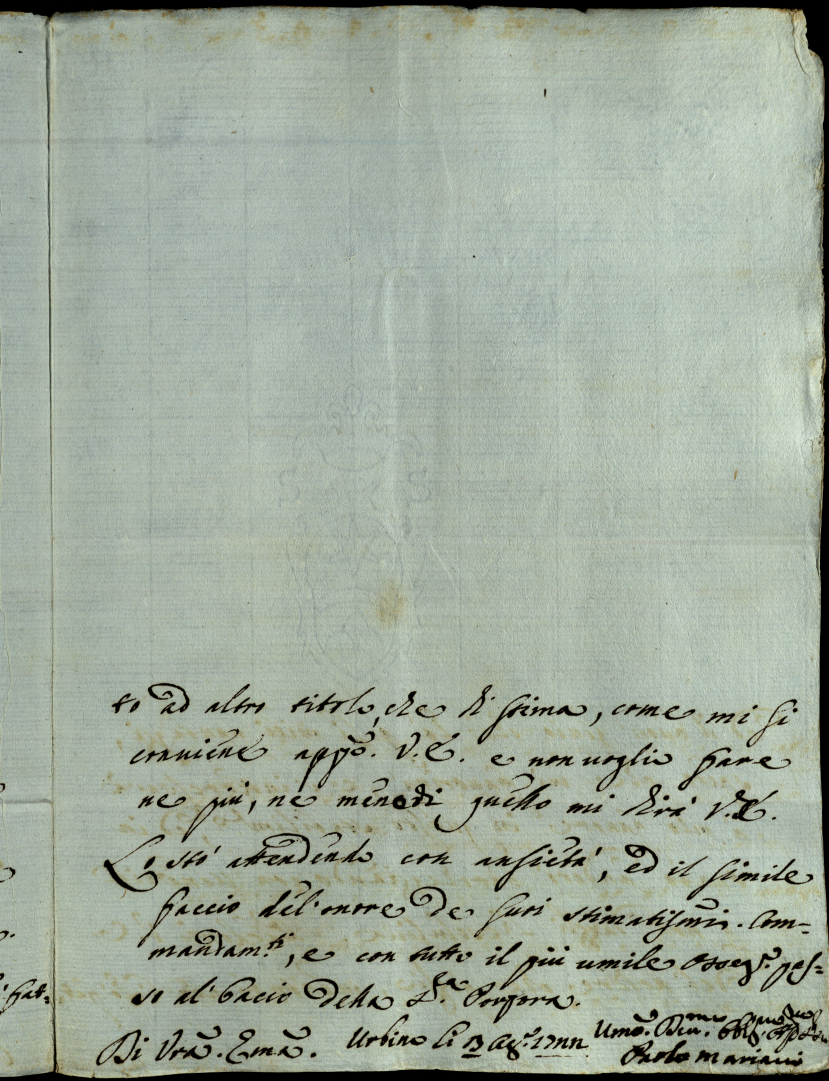 to ad altro titolo, che di stima, come mi si
conviene app.o V.E. e non voglio fare
ne più, ne meno di quello mi dirà V.E.
Lo stò attendendo con ansietà, ed il simile
faccio del'onore de suoi stimatissimi. Com-
mandam.ti, e con tutto il più umile osseq.o pas-
so al' bacio della S.ra Porpora.
Di Vrã. Emã. Urbino li 13 Ag.o
Paolo Mariani